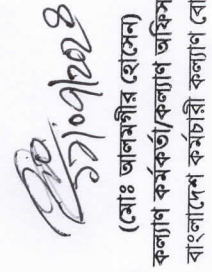 ১১/০৭/২০২৪
(মোঃ আলমগীর হোসেন)
কল্যাণ কর্মকর্তা/কল্যাণ অফিস
বাংলাদেশ কর্মচারী কল্যাণ বো